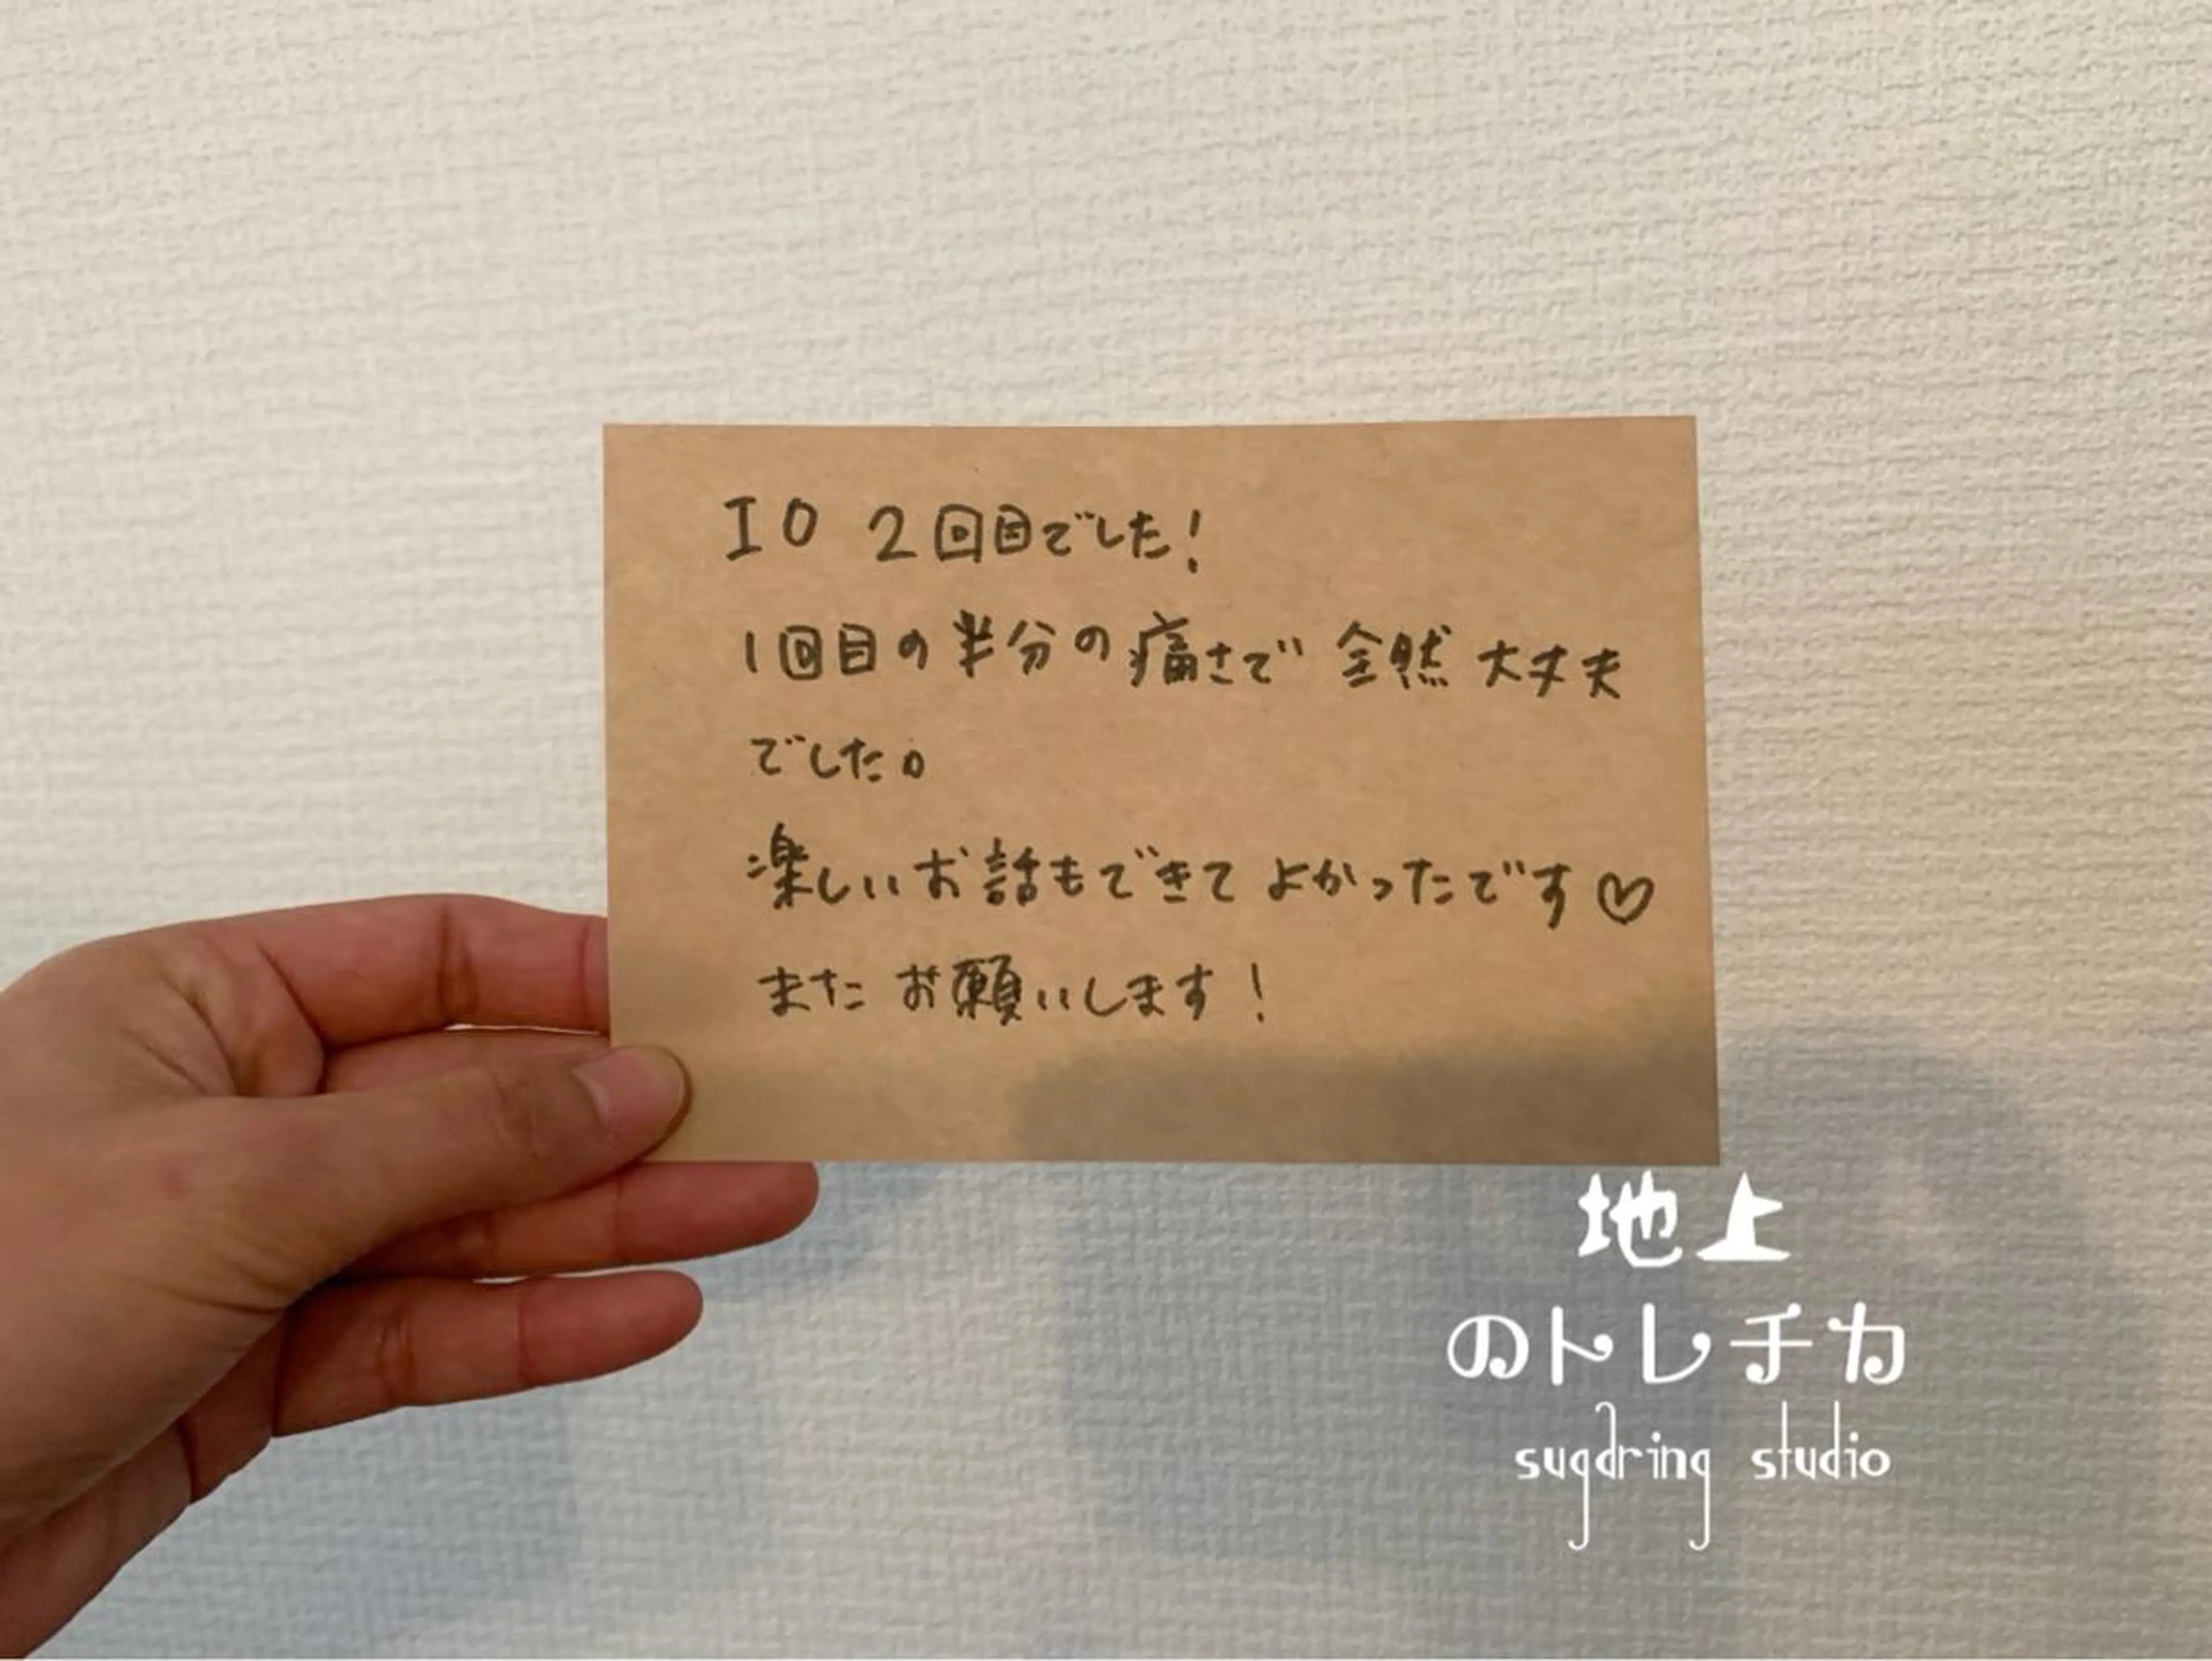 IO 2回目でした！
1回目の半分の痛さで 全然 大丈夫
でした。
楽しいお話もできて よかったです♡
また お願いします！
地上
のトレチカ
sugaring studio